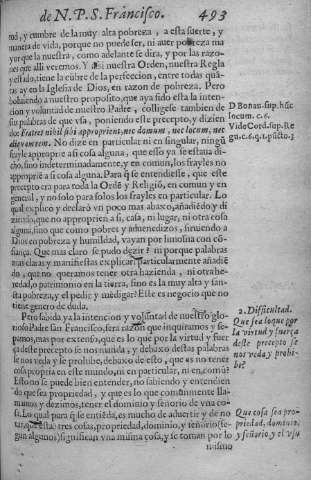 de N. P. S. Francisco. 493
tud, y cumbre de la muy alta pobreza, a esta suerte, y
manera de vida, porque no puede ser, ni auer pobreza ma
yor que la nuestra, como adelante se dira, y por las razo-
nes que alli veremos. Y assi nuestra Orden, nuestra Regla
y estado, tiene la cũbre de la perfeccion, entre todas quã-
tas ay en la Iglesia de Dios, en razon de pobreza. Pero
boluiendo a nuestro proposito, que aya sido esta la inten-
cion y voluntad de nuestro Padre, colligese tambien de
sus palabras de que vsa, poniendo este precepto, y dizien
do: Fratres nihil sibi approprient, nec domum, nec locum, nec
aliquam rem. No dize en particular ni en singular, ningũ
frayle apropie assi cosa alguna, que esso ya se estaua di-
cho, sino indeterminadamente, y en comun, los frayles no
approprie a si cosa alguna. Para q̃ se entendiesse, que este
precepto era para toda la Ordẽ y Religiõ, en comun y en
general, y no solo para solos los frayles en particular. Lo
qual explico y declarò vn poco mas abaxo, añadiẽdo y di
ziendo, que no approprien a si, casa, ni lugar, ni otra cosa
alguna, sino que como pobres y aduenedizos, siruiendo a
Dios en pobreza y humildad, vayan por limosna con cõ-
fiança. Que mas claro se pudo dezir? ni porque palabras
mas claras y manifiestas explicar particularmente añadiẽ
do, que no queramos tener otra hazienda, ni otra he-
redad, o patrimonio en la tierra, sino es la muy alta y san-
ta pobreza, y el pedir y mẽdigar? Este es negocio que no
tiene genero de duda.
Pero sabida ya la intencion y voluntad de nuestro glo-
rioso Padre san Francisco, sera razon que inquiramos y se
pamos, mas por extenso, que es lo que por la virtud y fuer
ça deste precepto se nos manda, y debaxo destas palabras
se nos veda y se prohibe, debaxo de esto, que es no tener
cosa propria en este mundo, ni en particular, ni en comũ?
Esto no se puede bien entender, no sabiendo y entendien
do que sea propriedad, y que es lo que comũmente lla-
mamos y dezimos, tener el dominio y señorio de vna co-
sa. Lo qual para q̃ se entiẽda, es mucho de aduertir y de no
tar, que estas tres cosas, propriedad, dominio, y señorio (se-
gun algunos) significan vna misma cosa, y se toman por lo
mismo
D. Bonau. sup. hũc
locum. c. 6.
Vide Cord. sup. Re
gu. c. 6. q. 1. pũcto. 3
2. Dificultad.
Que sea lo que por
la virtud y fuerça
deste precepto se
nos veda y prohi-
be?
Que cosa sea pro-
priedad, dominio,
y señorio y el vso